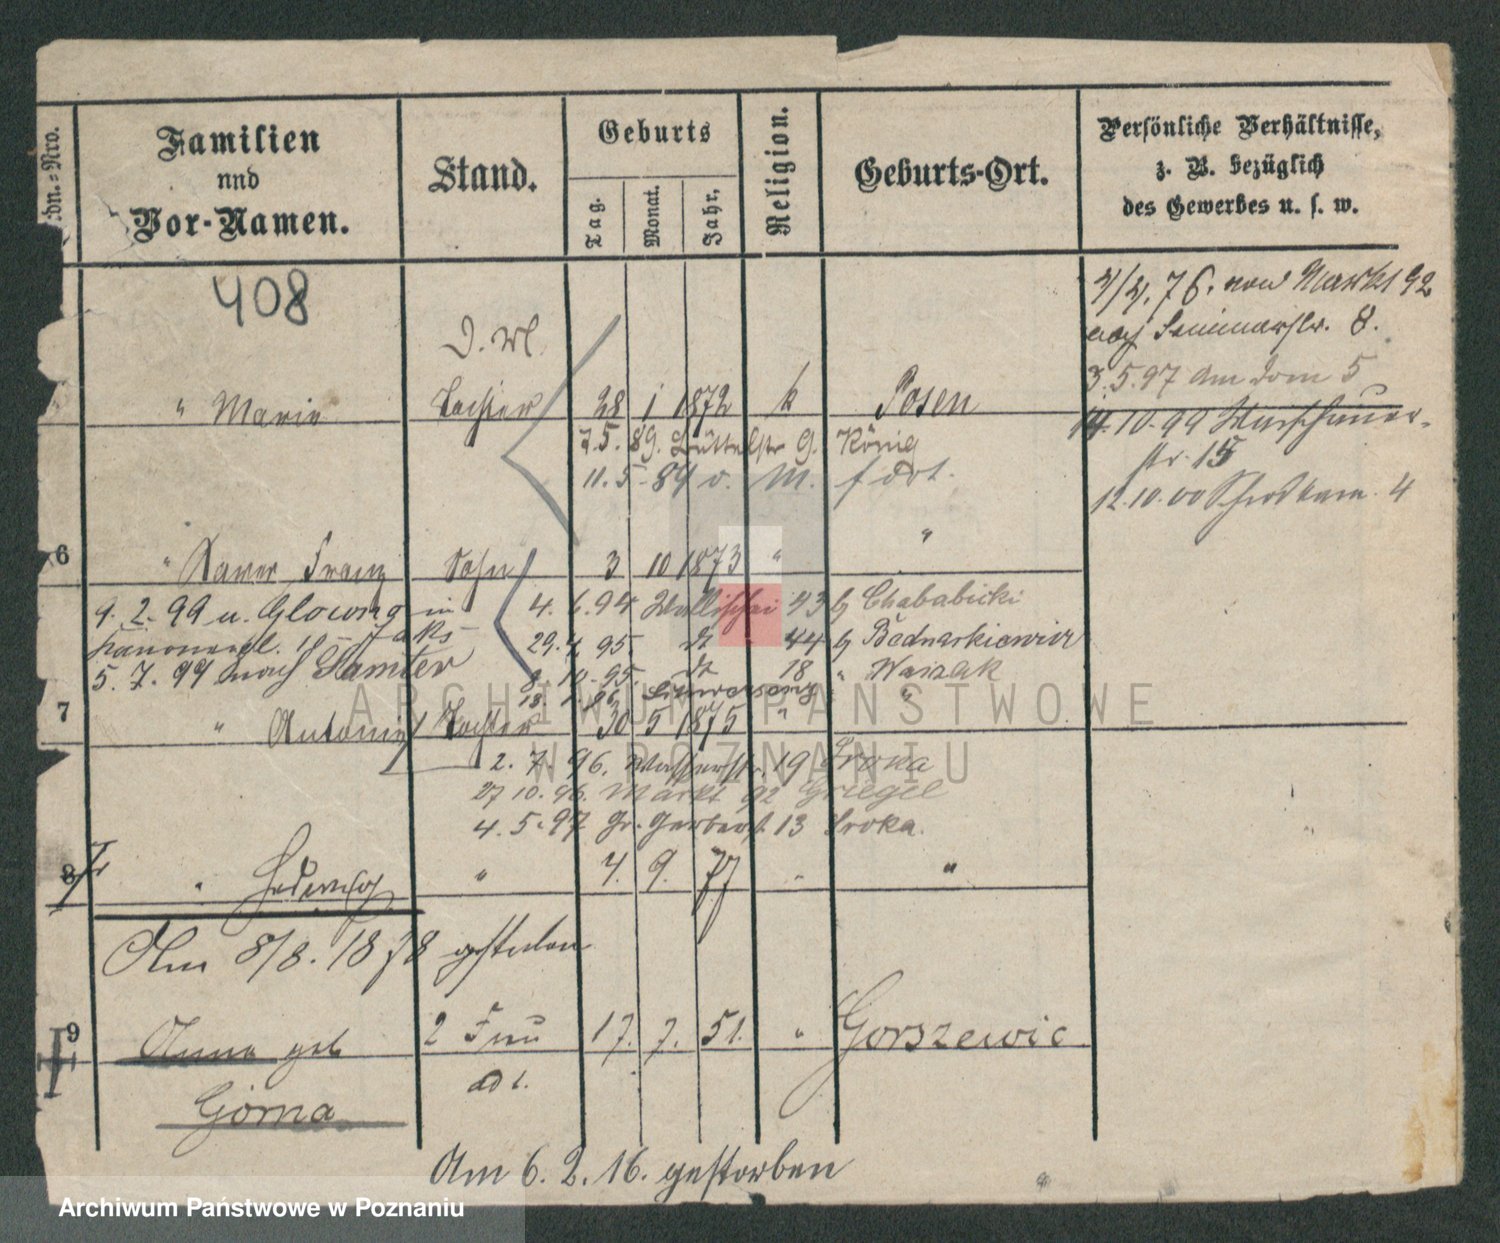 Familien
und
Vor-Namen.
Stand.
Geburts
Tag.
Monat.
Jahr.
Religion.
Geburts-Ort.
Persönliche Verhältnisse,
z. B. bezüglich
des Gewerbes u. s. w.
408
76. von Markt 92
nach Seminarstr. 8.
3.5.97 Am Dom 5
14.10.99 Warschauer-
str. 15
12.10.00 4
" Marie Tochter 28 1 1872 k Posen
7.5.89. Büttelstr 9. König
11.5.89 v. M. f dort.
6 " Xaver Franz Sohn 3 10 1873 " "
9.2.99 u. Glowno in
4.6.94 Wallischei 43 b Chababicki
29. 95. dt 44 b Bednarkiewicz
5.7.99 nach Samter
8.10.95. dt 18 " Wawzak
18.1.96 "
7 " Antonie Tochter 30 5 1875 "
2.7.96. Wasserstr. 19 Sroka
27 10.96. Markt 92 Griegel
4.5.97 Gr. Gerberst. 13 Sroka.
8 " Hedwig " 4. 9. 77 " "
Am 8/8. 1878 gestorben
9 Anna geb 2 Frau 17. 7. 51. " Gorszewic
ad 1.
Górna
Am 6.2.16. gestorben
ARCHIWUM PAŃSTWOWE
W POZNANIU
Archiwum Państwowe w Poznaniu